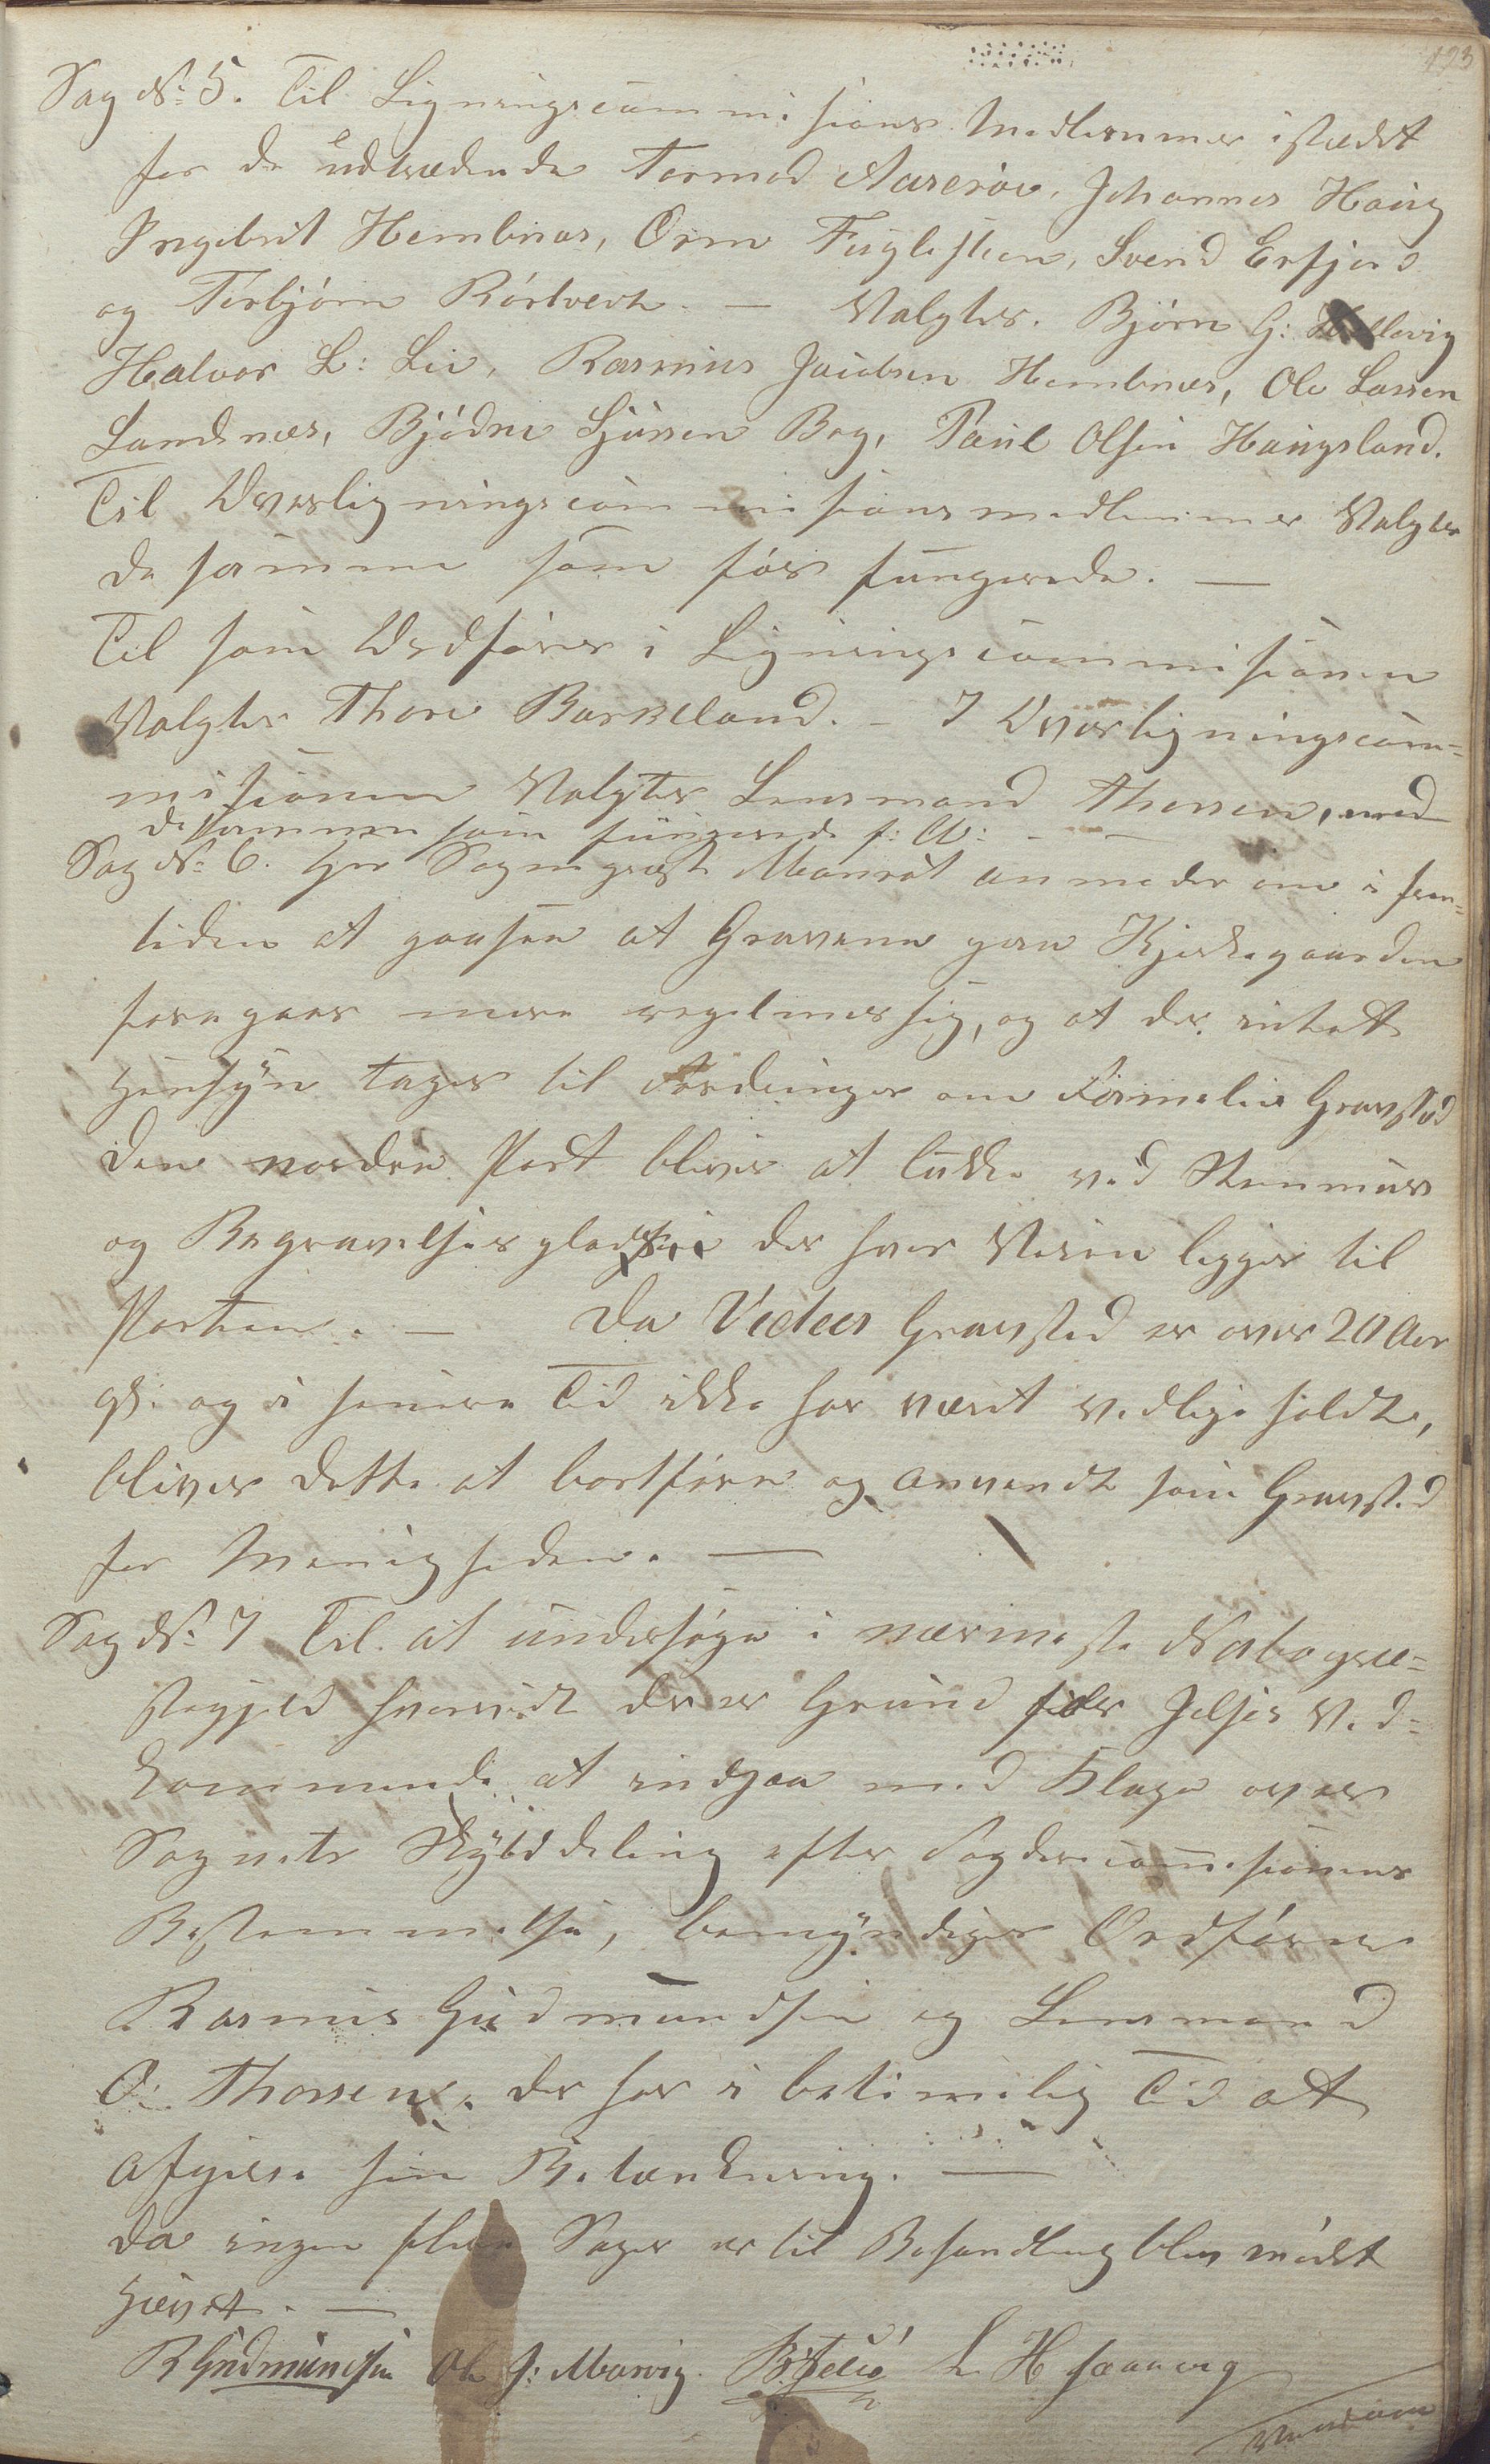 123
Sag No 5. Til Ligningscommisions Medlemmer istædet
for de udtrædende Tormod Aarerøe, Johannes Haug
Ingebrit Hembnes, Orm Fuglestein, Svend Erfjord
og Torbjørn Rørtvedt. — Valgtes. Bjørn G: Hellevig
Halvor L: Lie, Rasmus Jacobsen Hembnæs, Ole Larsen
Landsnes, Bjødne Sjursen Bog, Paul Olsen Haugsland.
Til Overligningscommisionsmedlemmer Valgtes
de samme som før fungerede. —
Til som Ordfører i Ligningscommisionen
Valgtes Thore Barkeland. – I Overligningscom=
misionen Valgtes Lensmand Thorsen, med
de samme som fungerede f: A: – —
Sag No 6. Hr Sogneprest Monrat anmoder om i frem=
tiden at paasee at Gravene paa Kjirkegaarden
foregaar mere regelmessig, og at der intet
Hensyn tages til Fordringer om Familie Gravsted
Den nordre Port bliver at lukke ved Steenmuur
og Begravelsesplads der hvor Veien ligger til
Porten. — Da Vidies Gravsted er over 20 Aar
gl. og i senere Tid ikke har været vedlige holdt,
bliver dette at bortføre og anvendt som Gravsted
for Menigheden. —
Sag No 7 Til at undersøge i nærmeste Nabopræ=
stegjeld hvorvidt der er Grund for Jelse Ved=
kommende at indgaa med Klage over
Sognets Skylddeling efter Fogderiecommisionens
Bestemmelse, bemyndiges Ordfører
Rasmus Gudmundsen og Lensmand
O. Thorsen, der har i betimelig Tid at
afgive sin Betænkning. —
Da ingen flere Sager er til Behandling blev mødet
hævet. —
R Gudmundsen Ole J: Marvig. B. Jelsø L H Haaverg